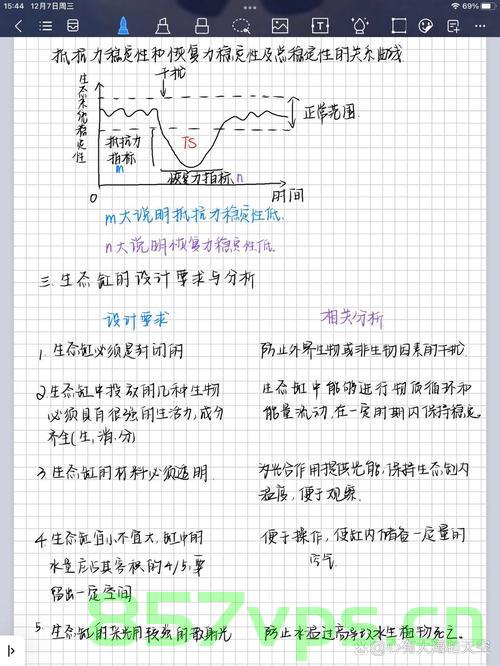 15:44 12月7日周三
69%
抵抗力稳定性和恢复力稳定性及总稳定性的关系曲线
干扰
生态系统稳定性
正常范围
抵抗力
指标
m
TS
恢复力指标n
0
时间
m大说明抵抗力稳定性低.
n大说明恢复力稳定性低.
三.生态缸的设计要求与分析
设计要求 相关分析
1.生态缸必须是封闭的 防止外界生物或非生物因素的干扰.
2.生态缸中投放的几种生物 生态缸中能够进行物质循环和
必须具有很强的生活力,成分 能量流动,在一定时期内保持稳定.
齐全(生,消,分)
3.生态缸的材料必须透明. 为光合作用提供光能,保持生态缸内
温度,便于观察.
4.生态缸宜小不宜大,缸中的 便于操作,使缸内储备一定量的
水量应占其容积的4/5,要 空气.
留出一定空间
5.生态缸的采光用较强的散射光 防止水温过高导致水生植物死亡.
857vps.cn